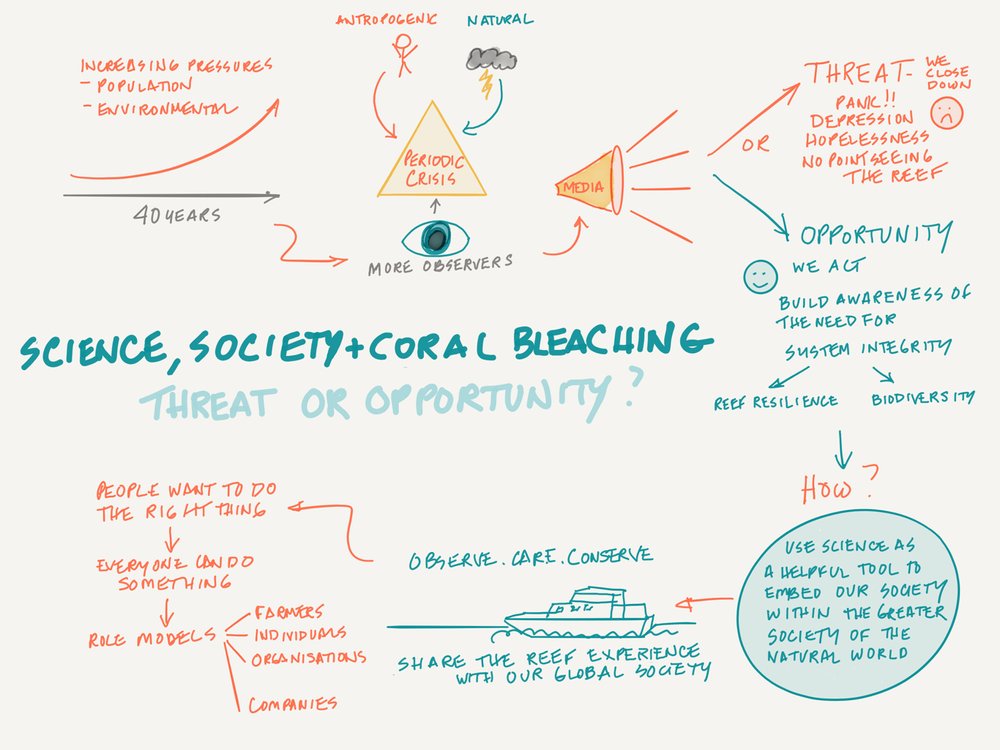 INCREASING PRESSURES
- POPULATION
- ENVIRONMENTAL
40 YEARS
ANTROPOGENIC
NATURAL
PERIODIC
CRISIS
MORE OBSERVERS
MEDIA
OR
THREAT-
WE
CLOSE
DOWN
PANIC!!
DEPRESSION
HOPELESSNESS
NO POINT SEEING
THE REEF
OPPORTUNITY
WE ACT
BUILD AWARENESS OF
THE NEED FOR
SYSTEM INTEGRITY
REEF RESILIENCE
BIODIVERSITY
SCIENCE, SOCIETY + CORAL BLEACHING
THREAT OR OPPORTUNITY?
HOW?
USE SCIENCE AS
A HELPFUL TOOL TO
EMBED OUR SOCIETY
WITHIN THE GREATER
SOCIETY OF THE
NATURAL WORLD
OBSERVE. CARE. CONSERVE
SHARE THE REEF EXPERIENCE
WITH OUR GLOBAL SOCIETY
PEOPLE WANT TO DO
THE RIGHT THING
EVERYONE CAN DO
SOMETHING
ROLE MODELS
FARMERS
INDIVIDUALS
ORGANISATIONS
COMPANIES